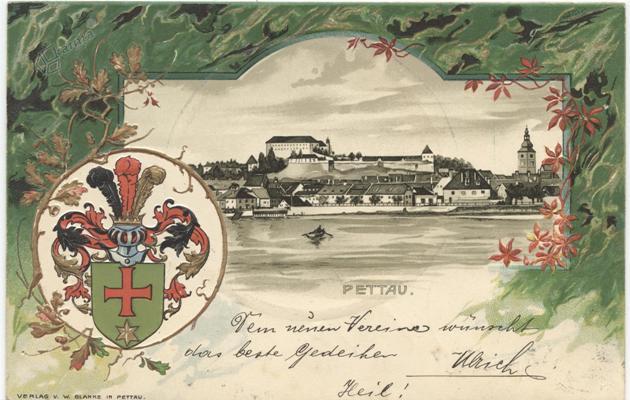 PETTAU.
Dem neuen Vereine wünscht
das beste Gedeihen
Ulrich
Heil!
VERLAG V. W. BLANKE IN PETTAU.